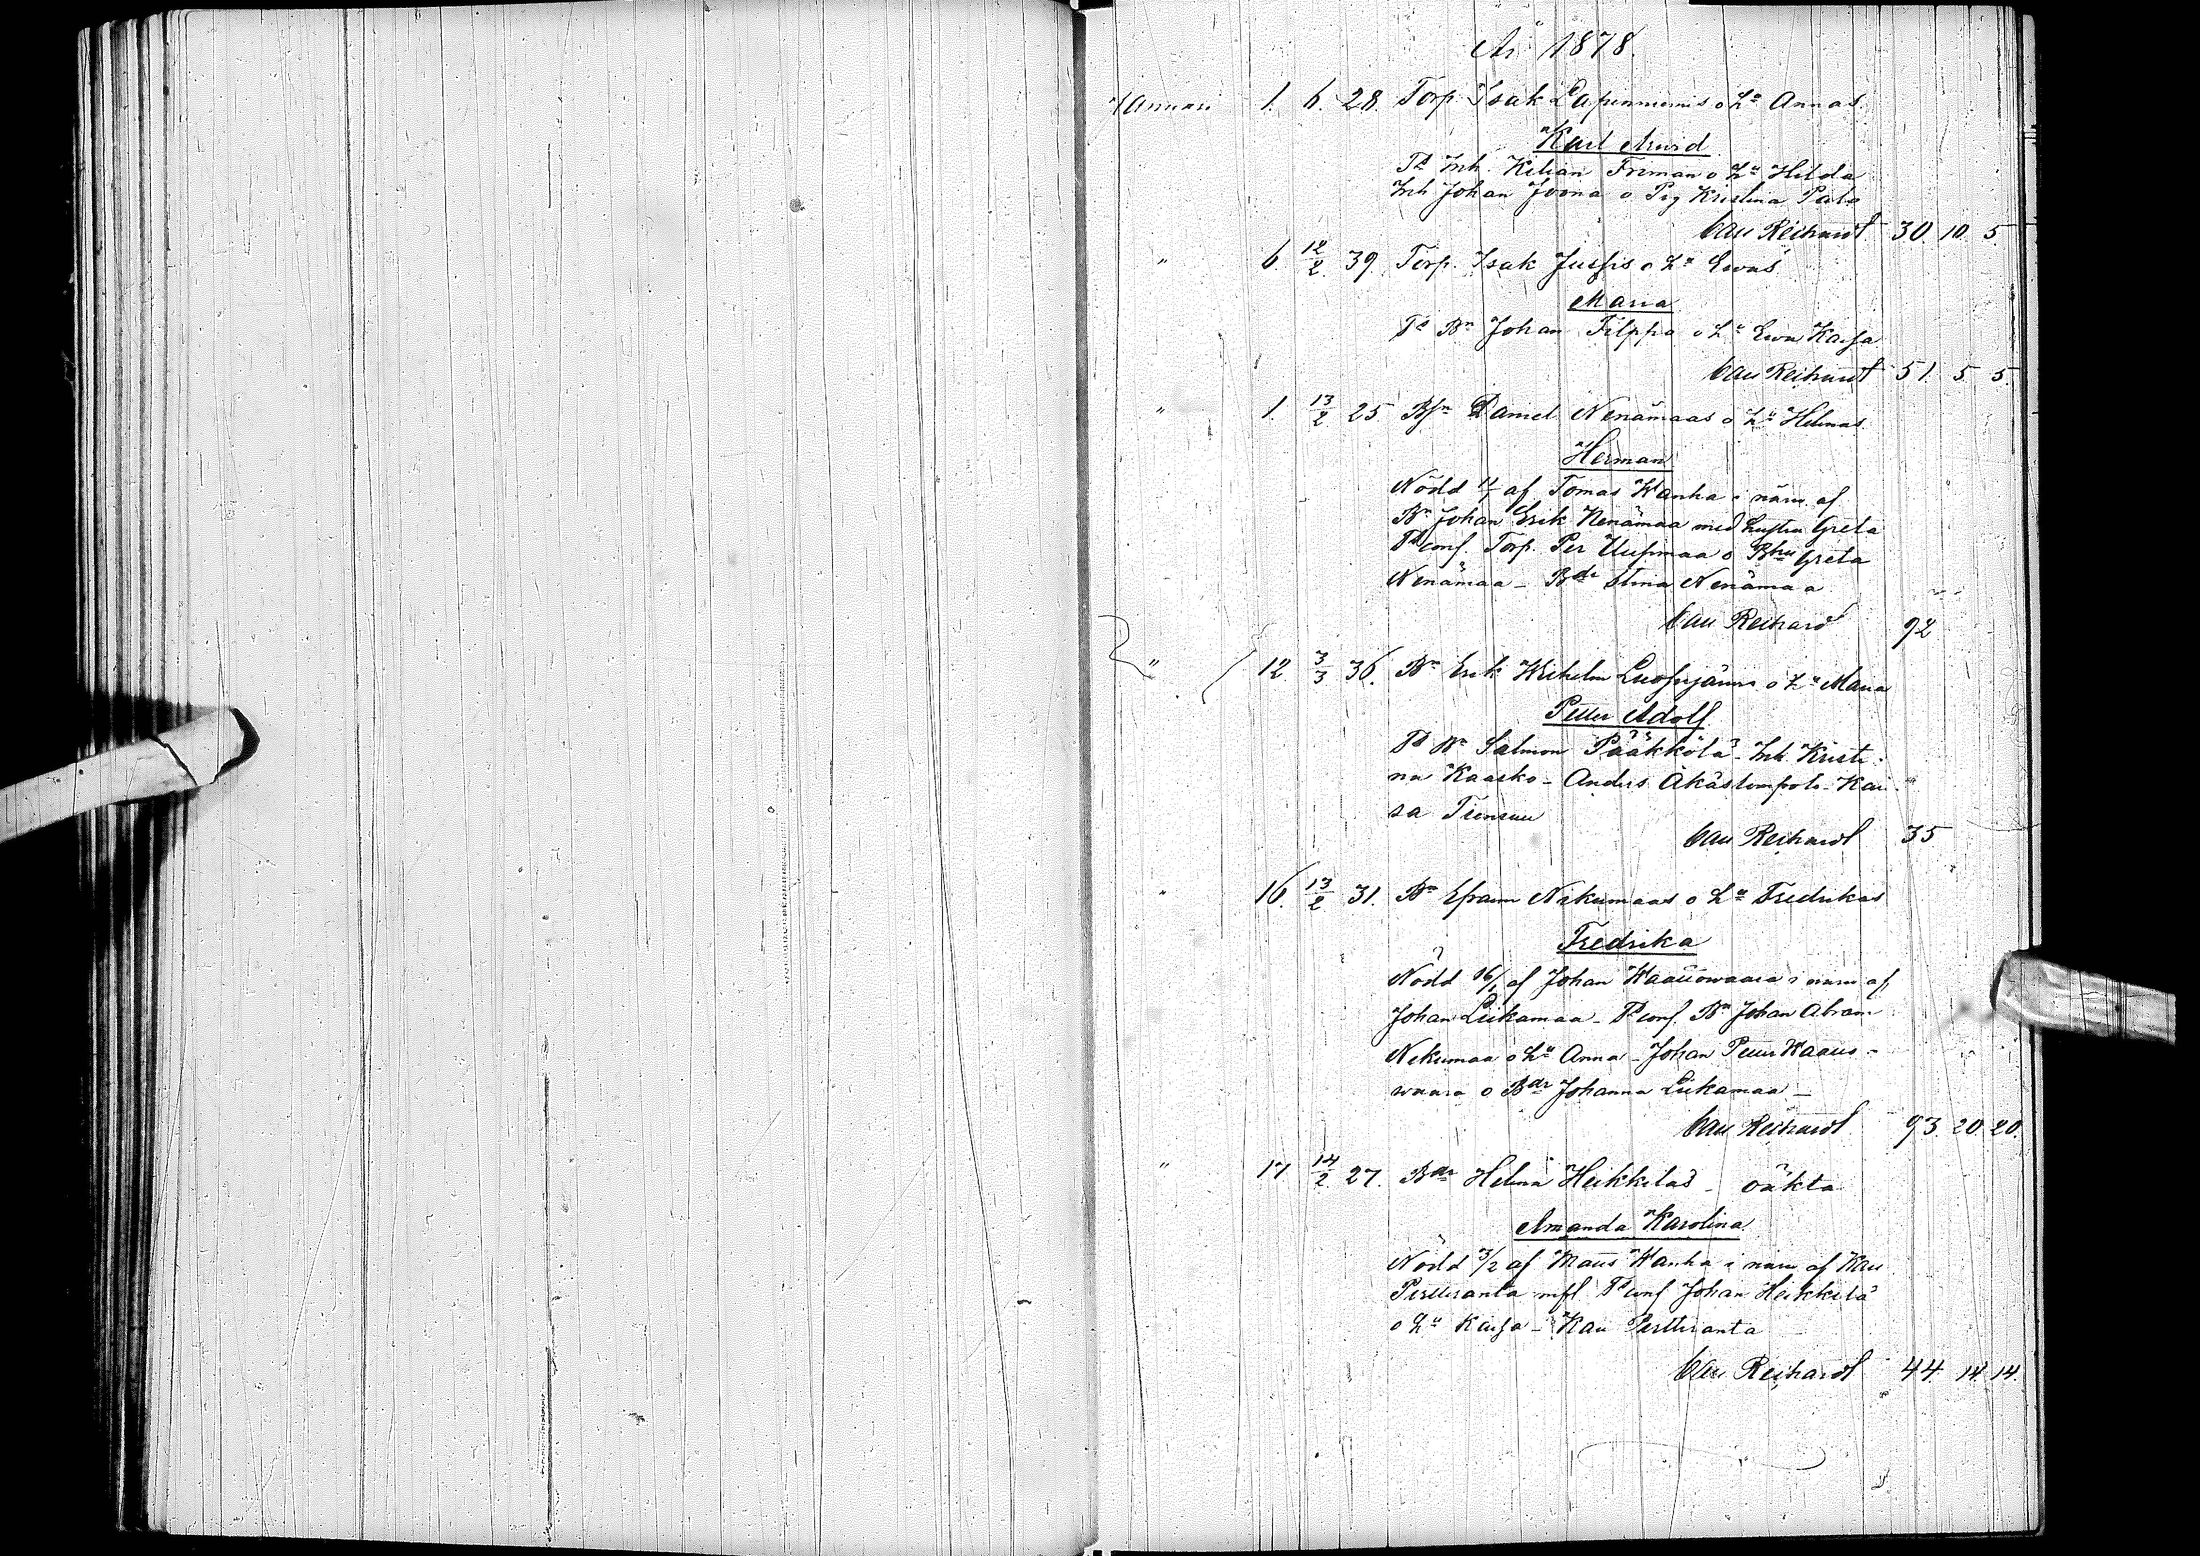 År 1878.
Januari 1. 6. 28. Torp. Isak Lapinniemis o Hu Annas
Karl Arvid
Td Inh. Kilian Friman o Hu Hilda
Inh Johan Joona o Pig Kristina Palo
Carl Reichardt 30. 10. 5.
" 6. 12/2 39. Torp. Isak Jussis o Hu Evas
Maria
Td Bn Johan Filppa o Hu Eva Kajsa
Carl Reichardt 51. 5. 5.
" 1. 13/2 25. Bsn Daniel Nenämaas o Hu Helenas
Herman
Nödd 11/1 af Tomas Wanha i närv. af
Bn Johan Erik Nenämaa med hustru Greta
Td conf. Torp. Per o Bhu Greta
Nenämaa - Bdr Stina Nenämaa
Carl Reichard 92
" 12 3/3 36. Bn Erik Wilhelm o Hu Maria
Petter Adolf
Td Bn Salmon Pääkkölä - Inh. Kristi-
na Kaasko - Anders Äkäslompolo - Kai-
sa
Carl Reichardt 35
" 16. 13/2 31. Bn Efraim Nikumaas o Hu Fredrikas
Fredrika
Nödd 16/1 af Johan i närv af
Johan Liikamaa - Td conf. Bn Johan Abram
Nikumaa o Hu Anna - Johan Petter
waara o Bdr Johanna Liikamaa -
Carl Reichardt 93. 20. 20.
" 17 14/2 27. Bdr Helena Heikkiläs - oäkta
Amanda Karolina
Nödd 3/2 af Maus Wanha i närv. af Karl
Pertteranta mfl. Td conf Johan Heikkilä
o Hu Kajsa - Karl Pertteranta
Carl Reichardt 44. 14. 14.